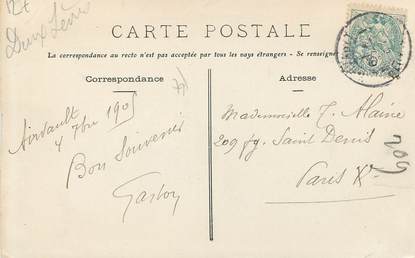 Deux Sèvres
CARTE POSTALE
La correspondance au recto n'est pas acceptée par tous les pays étrangers - Se renseigner
Correspondance
Adresse
Airvault
4 7bre 190
Bon Souvenir
Gaston
Mademoiselle J. Alaine
209 fg. Saint Denis
Paris Xe
209